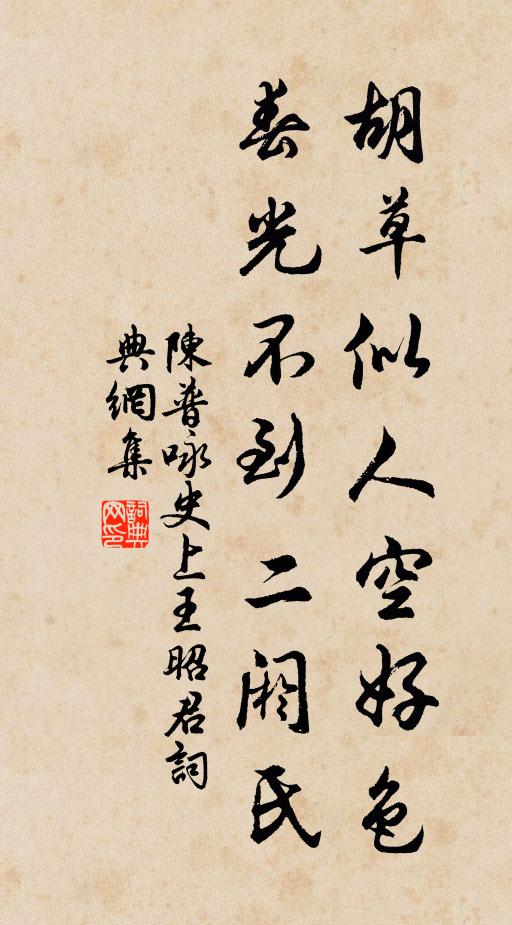 胡草似人空好色
春光不到二閼氏
陳普咏史上王昭君詞
典網集
詞典
网印